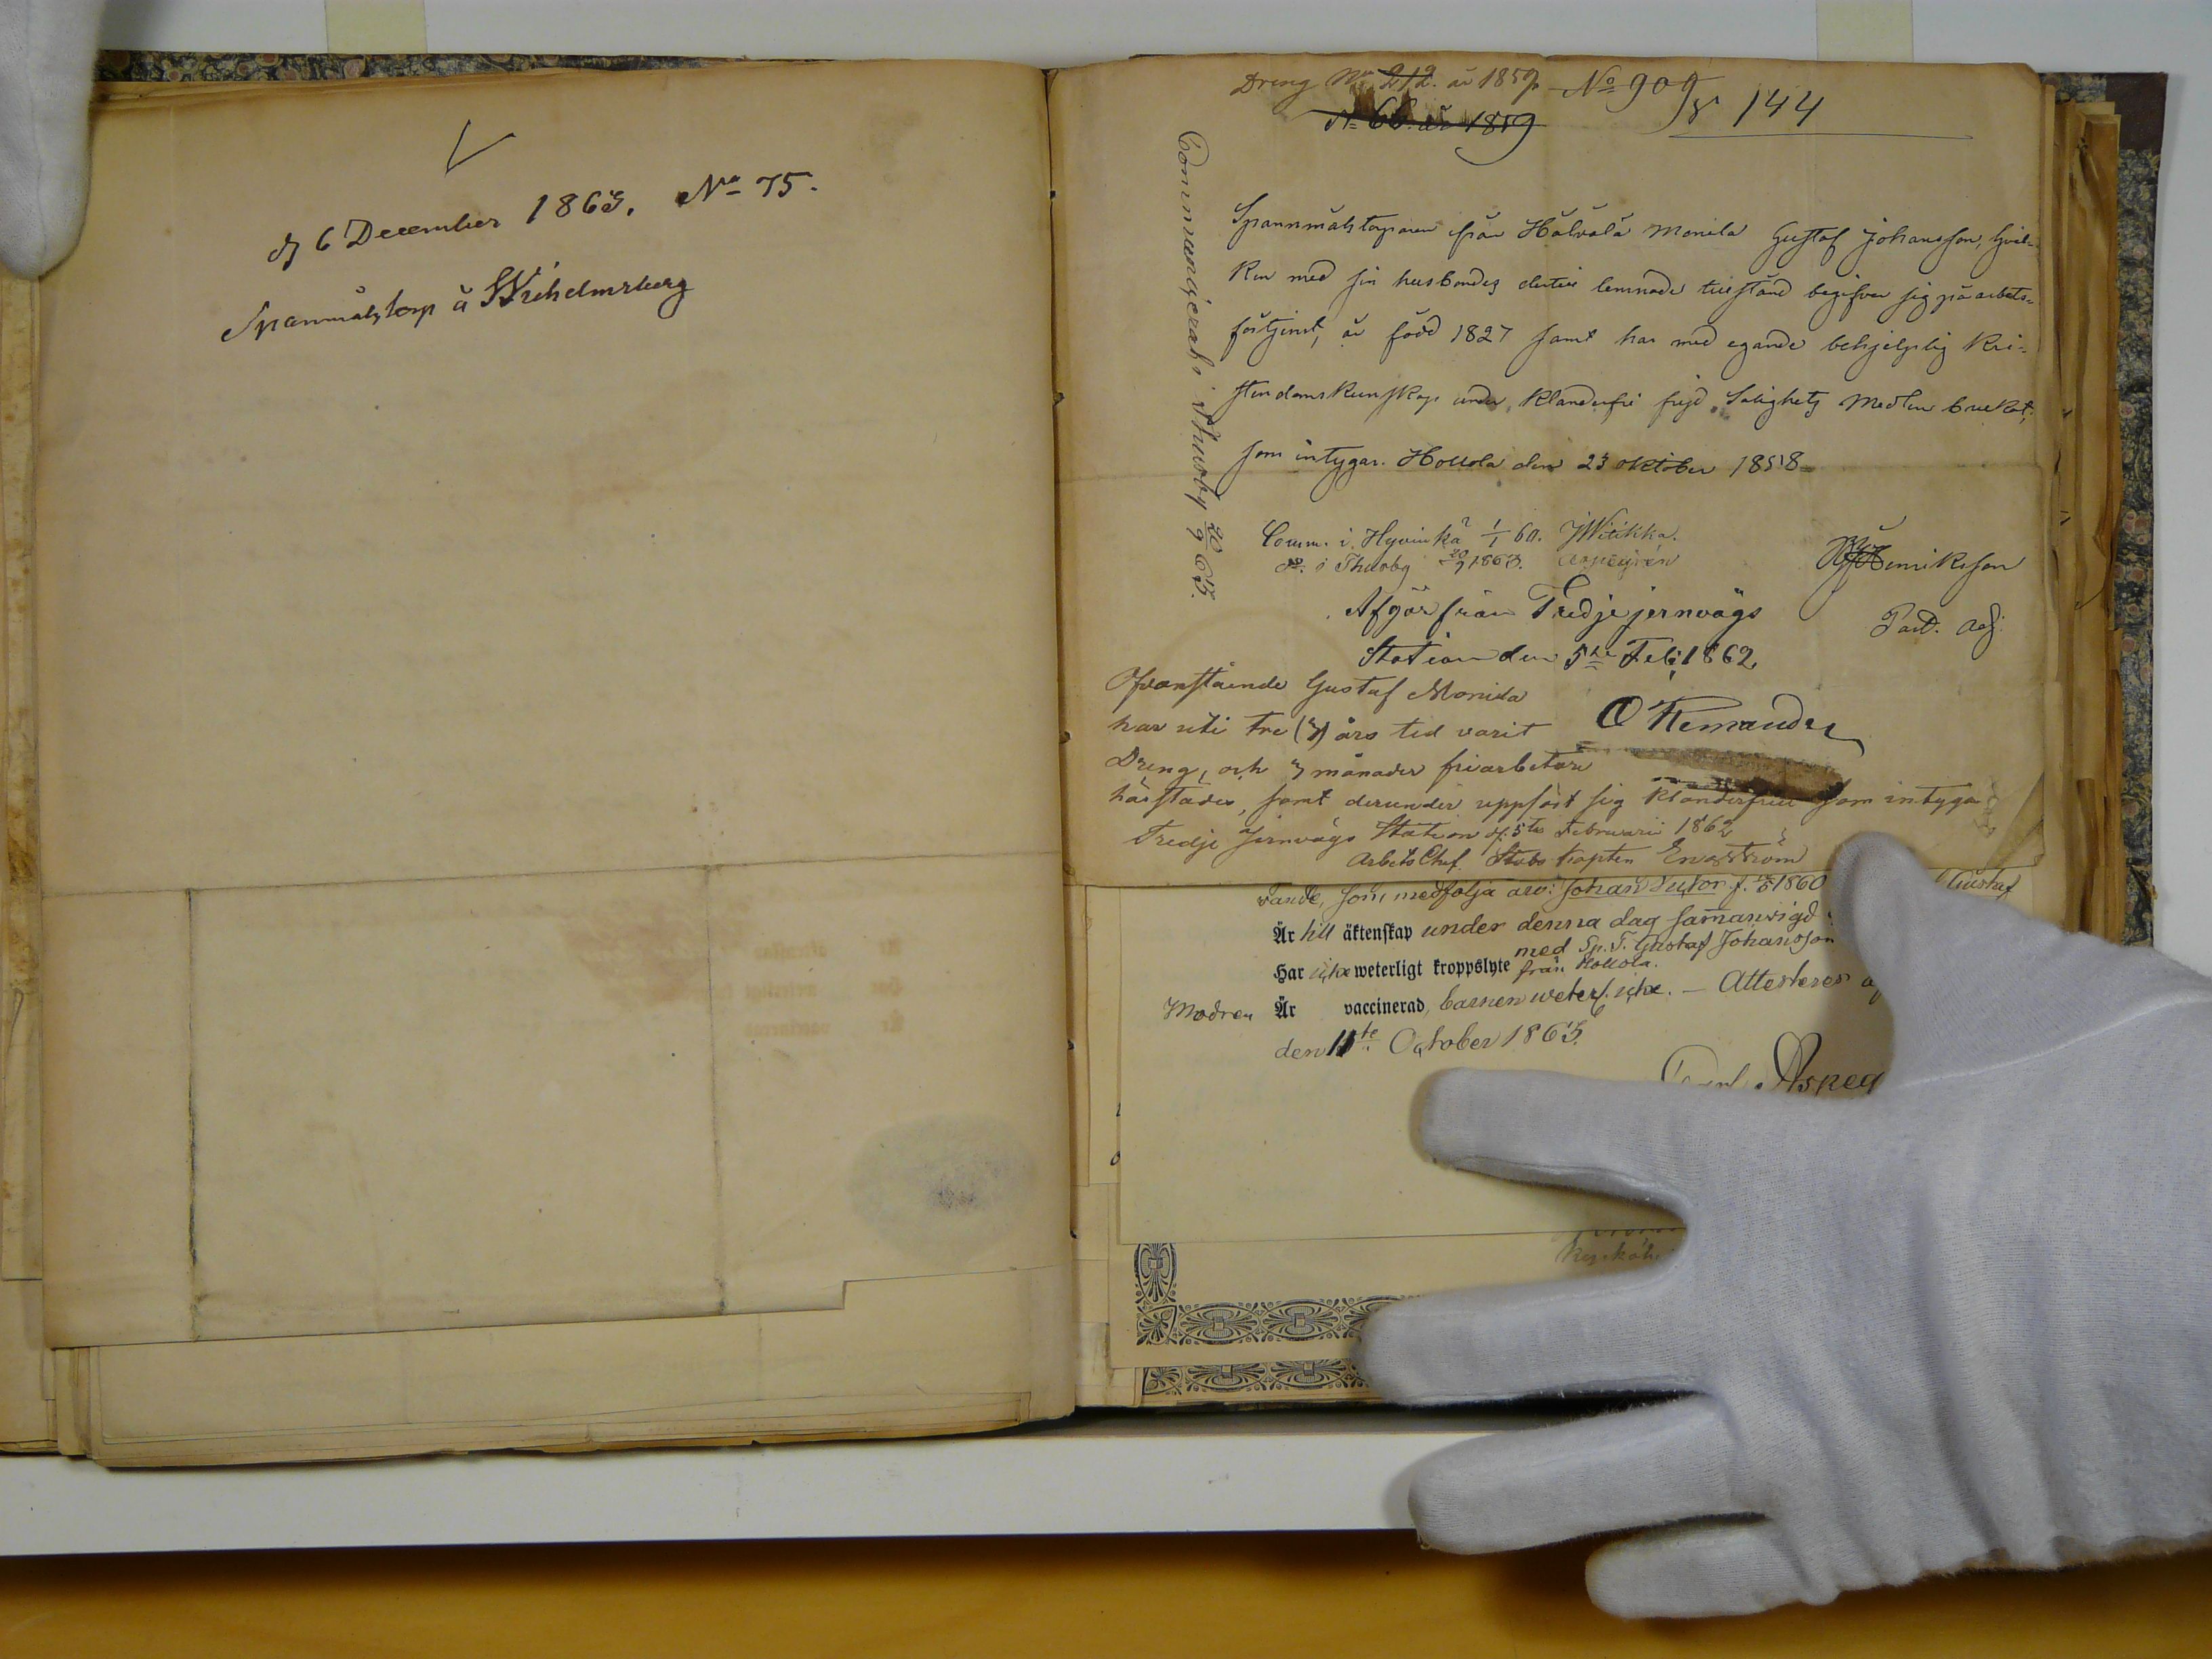 dᶻ 6 December 1863. No 75.
Spanmålstorp å Wilhelmsberg
Dreng No 212. år 1859. No 909
N 66 år 1859
S 144
Communicerats i Thusby 20/9 63.
Spannmålstorparen från Hälvälä Monila Gustaf Johansson, hvil-
ken med sin husbondes dertill lemnade tillstånd begifver sig på arbets-
förtjenst, är född 1827 samt har med egande behjelplig kri-
stendomskunskap under klanderfri frejd Salighets Medlen brukat,
som intygar. Hollola den 23 oktober 1858
Comm. i Hyvinkä 1/1 60. J Witikka.
do. i Thusby 20/9 1863. Aspegrén
Henriksson
Past. Adj.
Afgår från Tredje jernvägs
Station den 5te Feb; 1862,
Ofvanstående Gustaf Monila
har uti tre (3) års tid varit
Dreng, och 3 månader friarbetare
härstädes, samt derunder uppfört sig klanderfritt som intyga
Tredje Jernvägs Station d. 5te Februarii 1862
Arbets Chef Stabs Kapten Engström
vande, som medfölja äro: Johan Victor f. 1860 Gustaf
Är till äktenskap under denna dag samanvigd
med Sp. T. Gustaf Johansson
Har icke weterligt kroppslyte från Hollola.
Modren Är vaccinerad, barnen weterl. icke. — Attesteras
den 11te October 1863.
Carl Aspeg